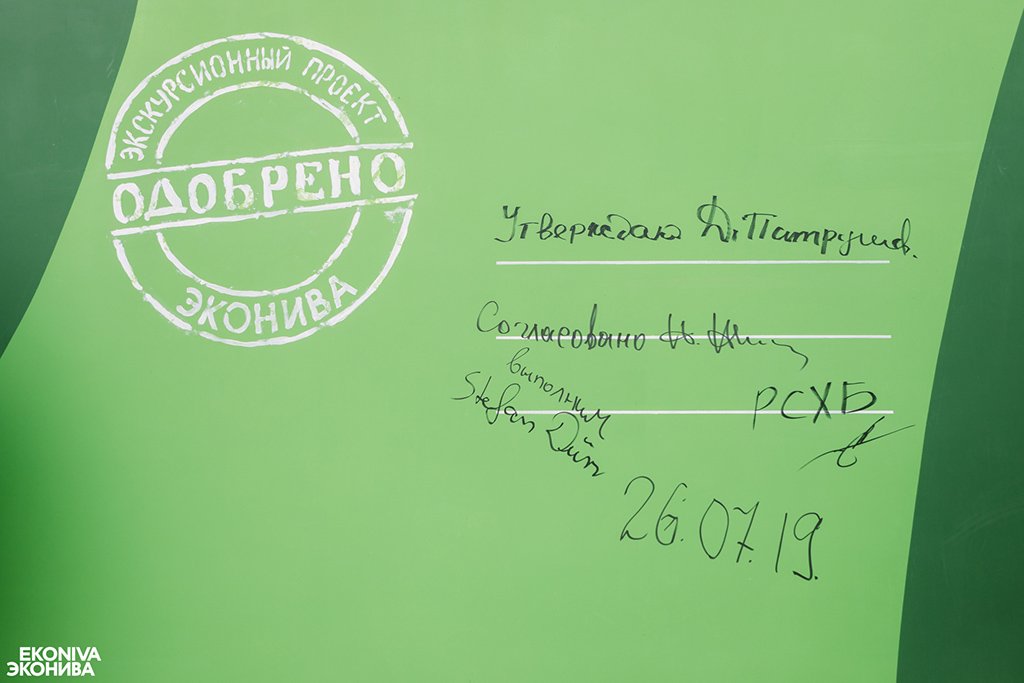 ЭКСКУРСИОННЫЙ ПРОЕКТ
ОДОБРЕНО
ЭКОНИВА
Утверждаю Д. Патрушев.
Согласовано Н.
выполним
Stefan Dürr
РСХБ
26.07.19.
EKONIVA
ЭКОНИВА